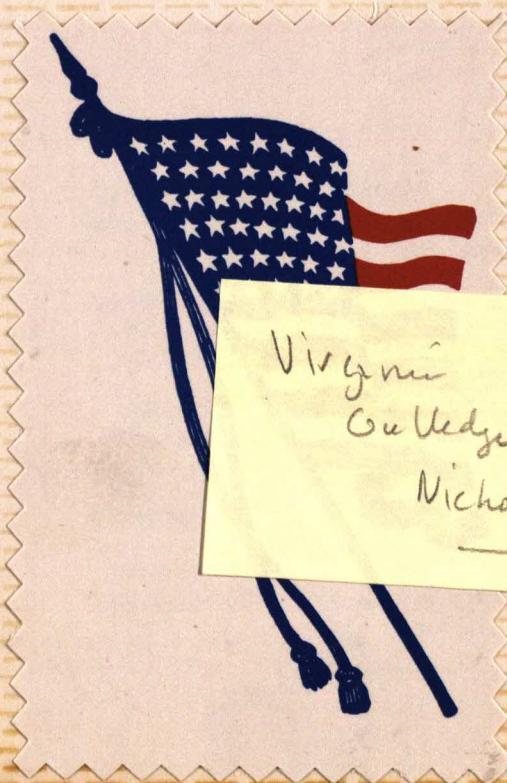 Virginia
Gulledge
Nicho